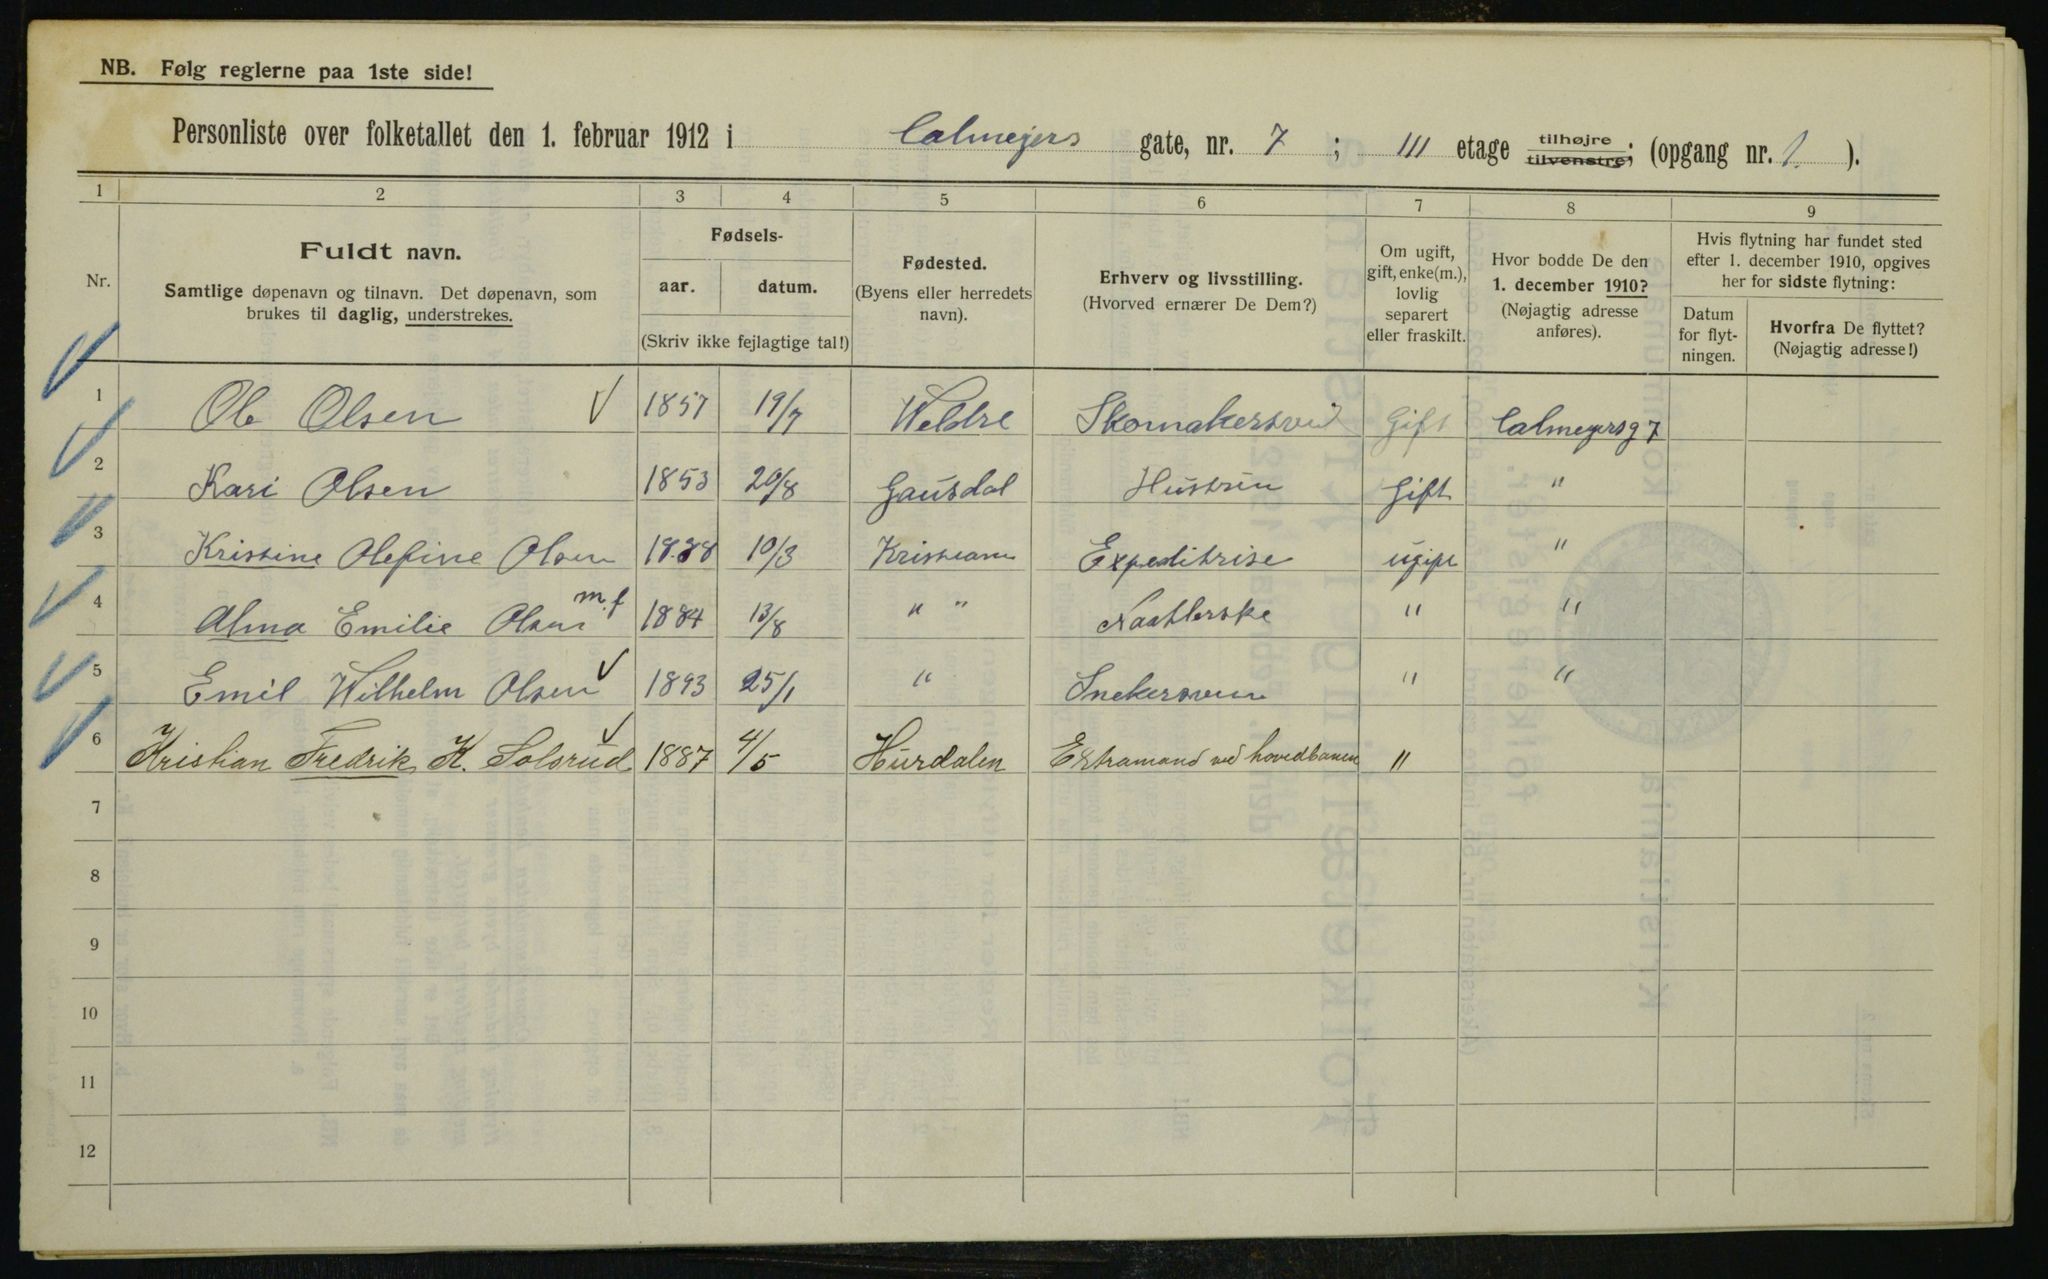 NB. Følg reglerne paa 1ste side!
Personliste over folketallet den 1. februar 1912 i Calmeyers gate, nr. 7 ; III etage tilhøjre tilvenstre; (opgang nr. 1. ).
1 2 3 4 5 6 7 8 9
Nr.
Fuldt navn.
Samtlige døpenavn og tilnavn. Det døpenavn, som
brukes til daglig, understrekes.
Fødsels-
aar. datum.
(Skriv ikke fejlagtige tal!)
Fødested.
(Byens eller herredets
navn).
Erhverv og livsstilling.
(Hvorved ernærer De Dem?)
Om ugift,
gift, enke(m.),
lovlig
separert
eller fraskilt.
Hvor bodde De den
1. december 1910?
(Nøjagtig adresse
anføres).
Hvis flytning har fundet sted
efter 1. december 1910, opgives
her for sidste flytning:
Datum
for flyt-
ningen.
Hvorfra De flyttet?
(Nøjagtig adresse!)
1 Ole Olsen 1857 19/7 Veldre Skomakersvend Gift Calmeyersg 7
2 Kari Olsen 1853 20/8 Gausdal Hustru Gift "
3 Kristine Olefine Olsen 1888 10/3 Kristiania Expeditrise ugift "
m.f
4 Alma Emilie Olsen 1884 13/8 " " Naatlerske " "
5 Emil Wilhelm Olsen 1893 25/1 " Snekersven " "
6 Kristian Fredrik K. Solsrud 1887 4/5 Hurdalen Ekstramand ved hovedbanen "
7
8
9
10
11
12